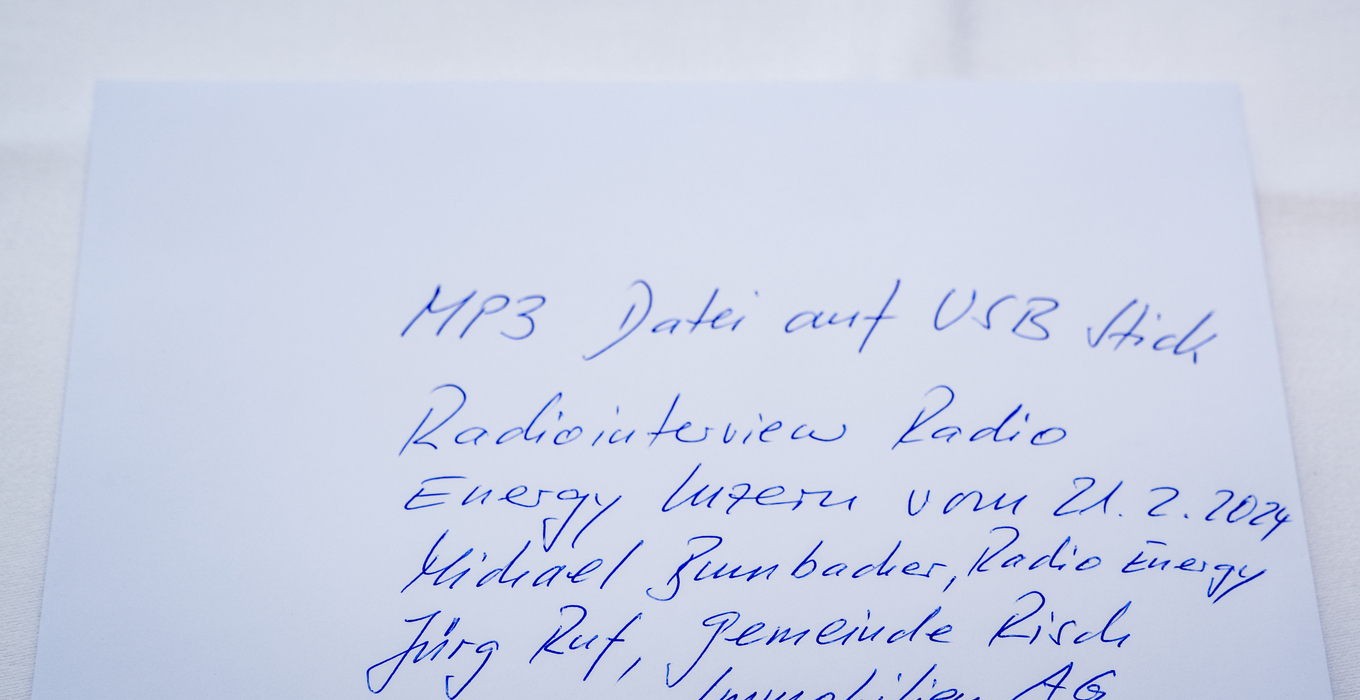 MP3 Datei auf USB Stick
Radiointerview Radio
Energy Luzern vom 21.2.2024
Michael Brunbacher, Radio Energy
Jürg Ruf, Gemeinde Risch
Immobilien AG